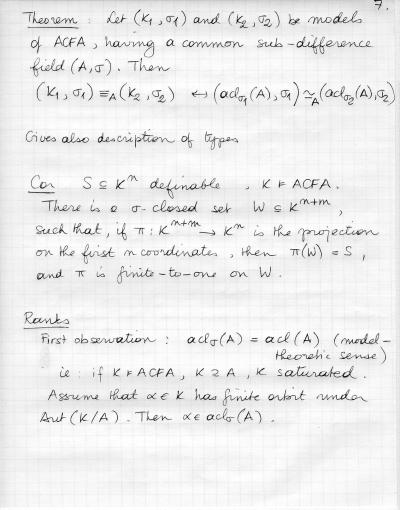 7.
Theorem : Let (K₁, σ₁) and (K₂, σ₂) be models
of ACFA, having a common sub-difference
field (A, σ). Then
(K₁, σ₁) ≡_A (K₂, σ₂) ↔ (acl_σ₁(A), σ₁) ≃_A (acl_σ₂(A), σ₂)
Gives also description of types
Cor S ⊆ Kⁿ definable , K ⊧ ACFA.
There is a σ-closed set W ⊆ Kⁿ⁺ᵐ,
such that, if π : Kⁿ⁺ᵐ → Kⁿ is the projection
on the first n coordinates, then π(W) = S,
and π is finite-to-one on W.
Ranks
First observation : acl_σ(A) = acl(A) (model-
theoretic sense)
ie : if K ⊧ ACFA, K ⊇ A, K saturated.
Assume that α ∈ K has finite orbit under
Aut(K/A). Then α ∈ acl_σ(A).